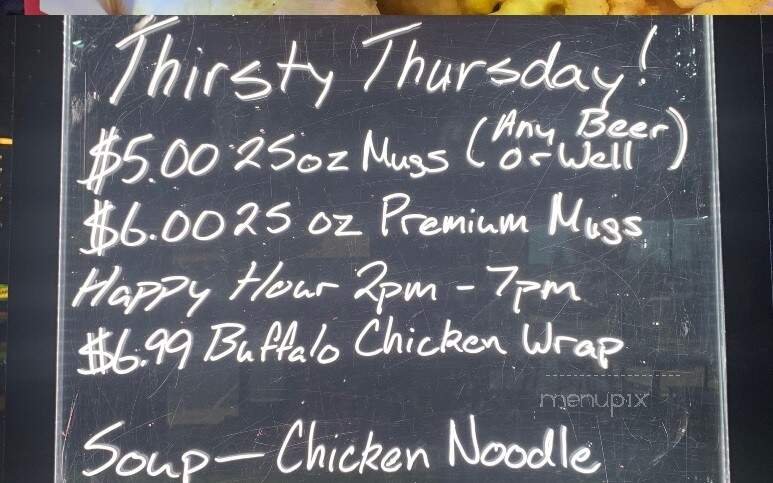 Thirsty Thursday!
$5.00 25oz Mugs (Any Beer or Well)
$6.00 25 oz Premium Mugs
Happy Hour 2pm - 7pm
$6.99 Buffalo Chicken Wrap
menupix
Soup - Chicken Noodle